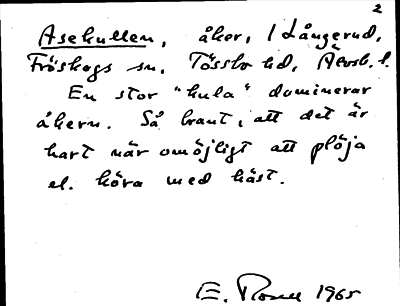 2
Asekullen, åker, / Långerud,
Fröskogs sn, Tössbo hd, Älvsb. l.
En stor "kula" dominerar
åkern. Så brant, att det är
hart när omöjligt att plöja
el. köra med häst.
E. Rosell 1965